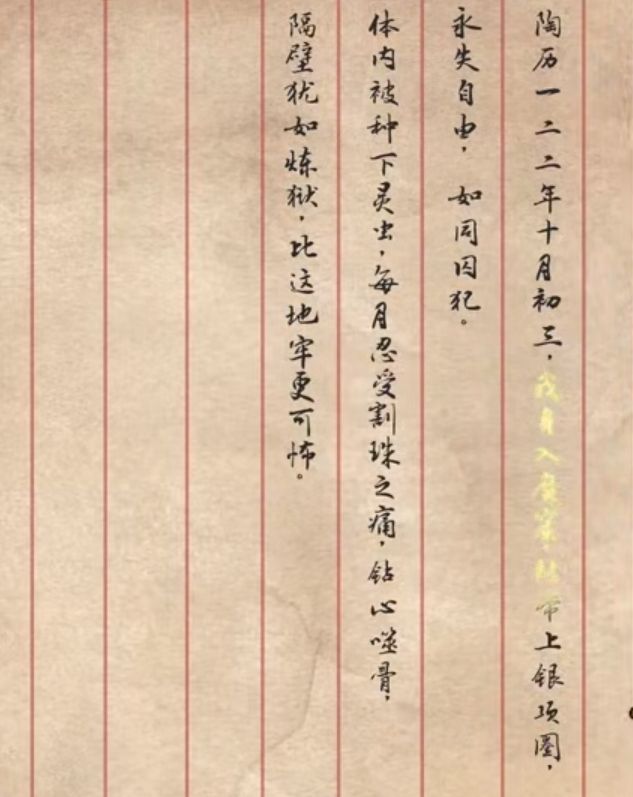 陶历一二二年十月初三，我身入魔窟，被带上银项圈，
永失自由，如同囚犯。
体内被种下灵虫，每月忍受割珠之痛，钻心噬骨，
隔壁犹如炼狱，比这地牢更可怖。